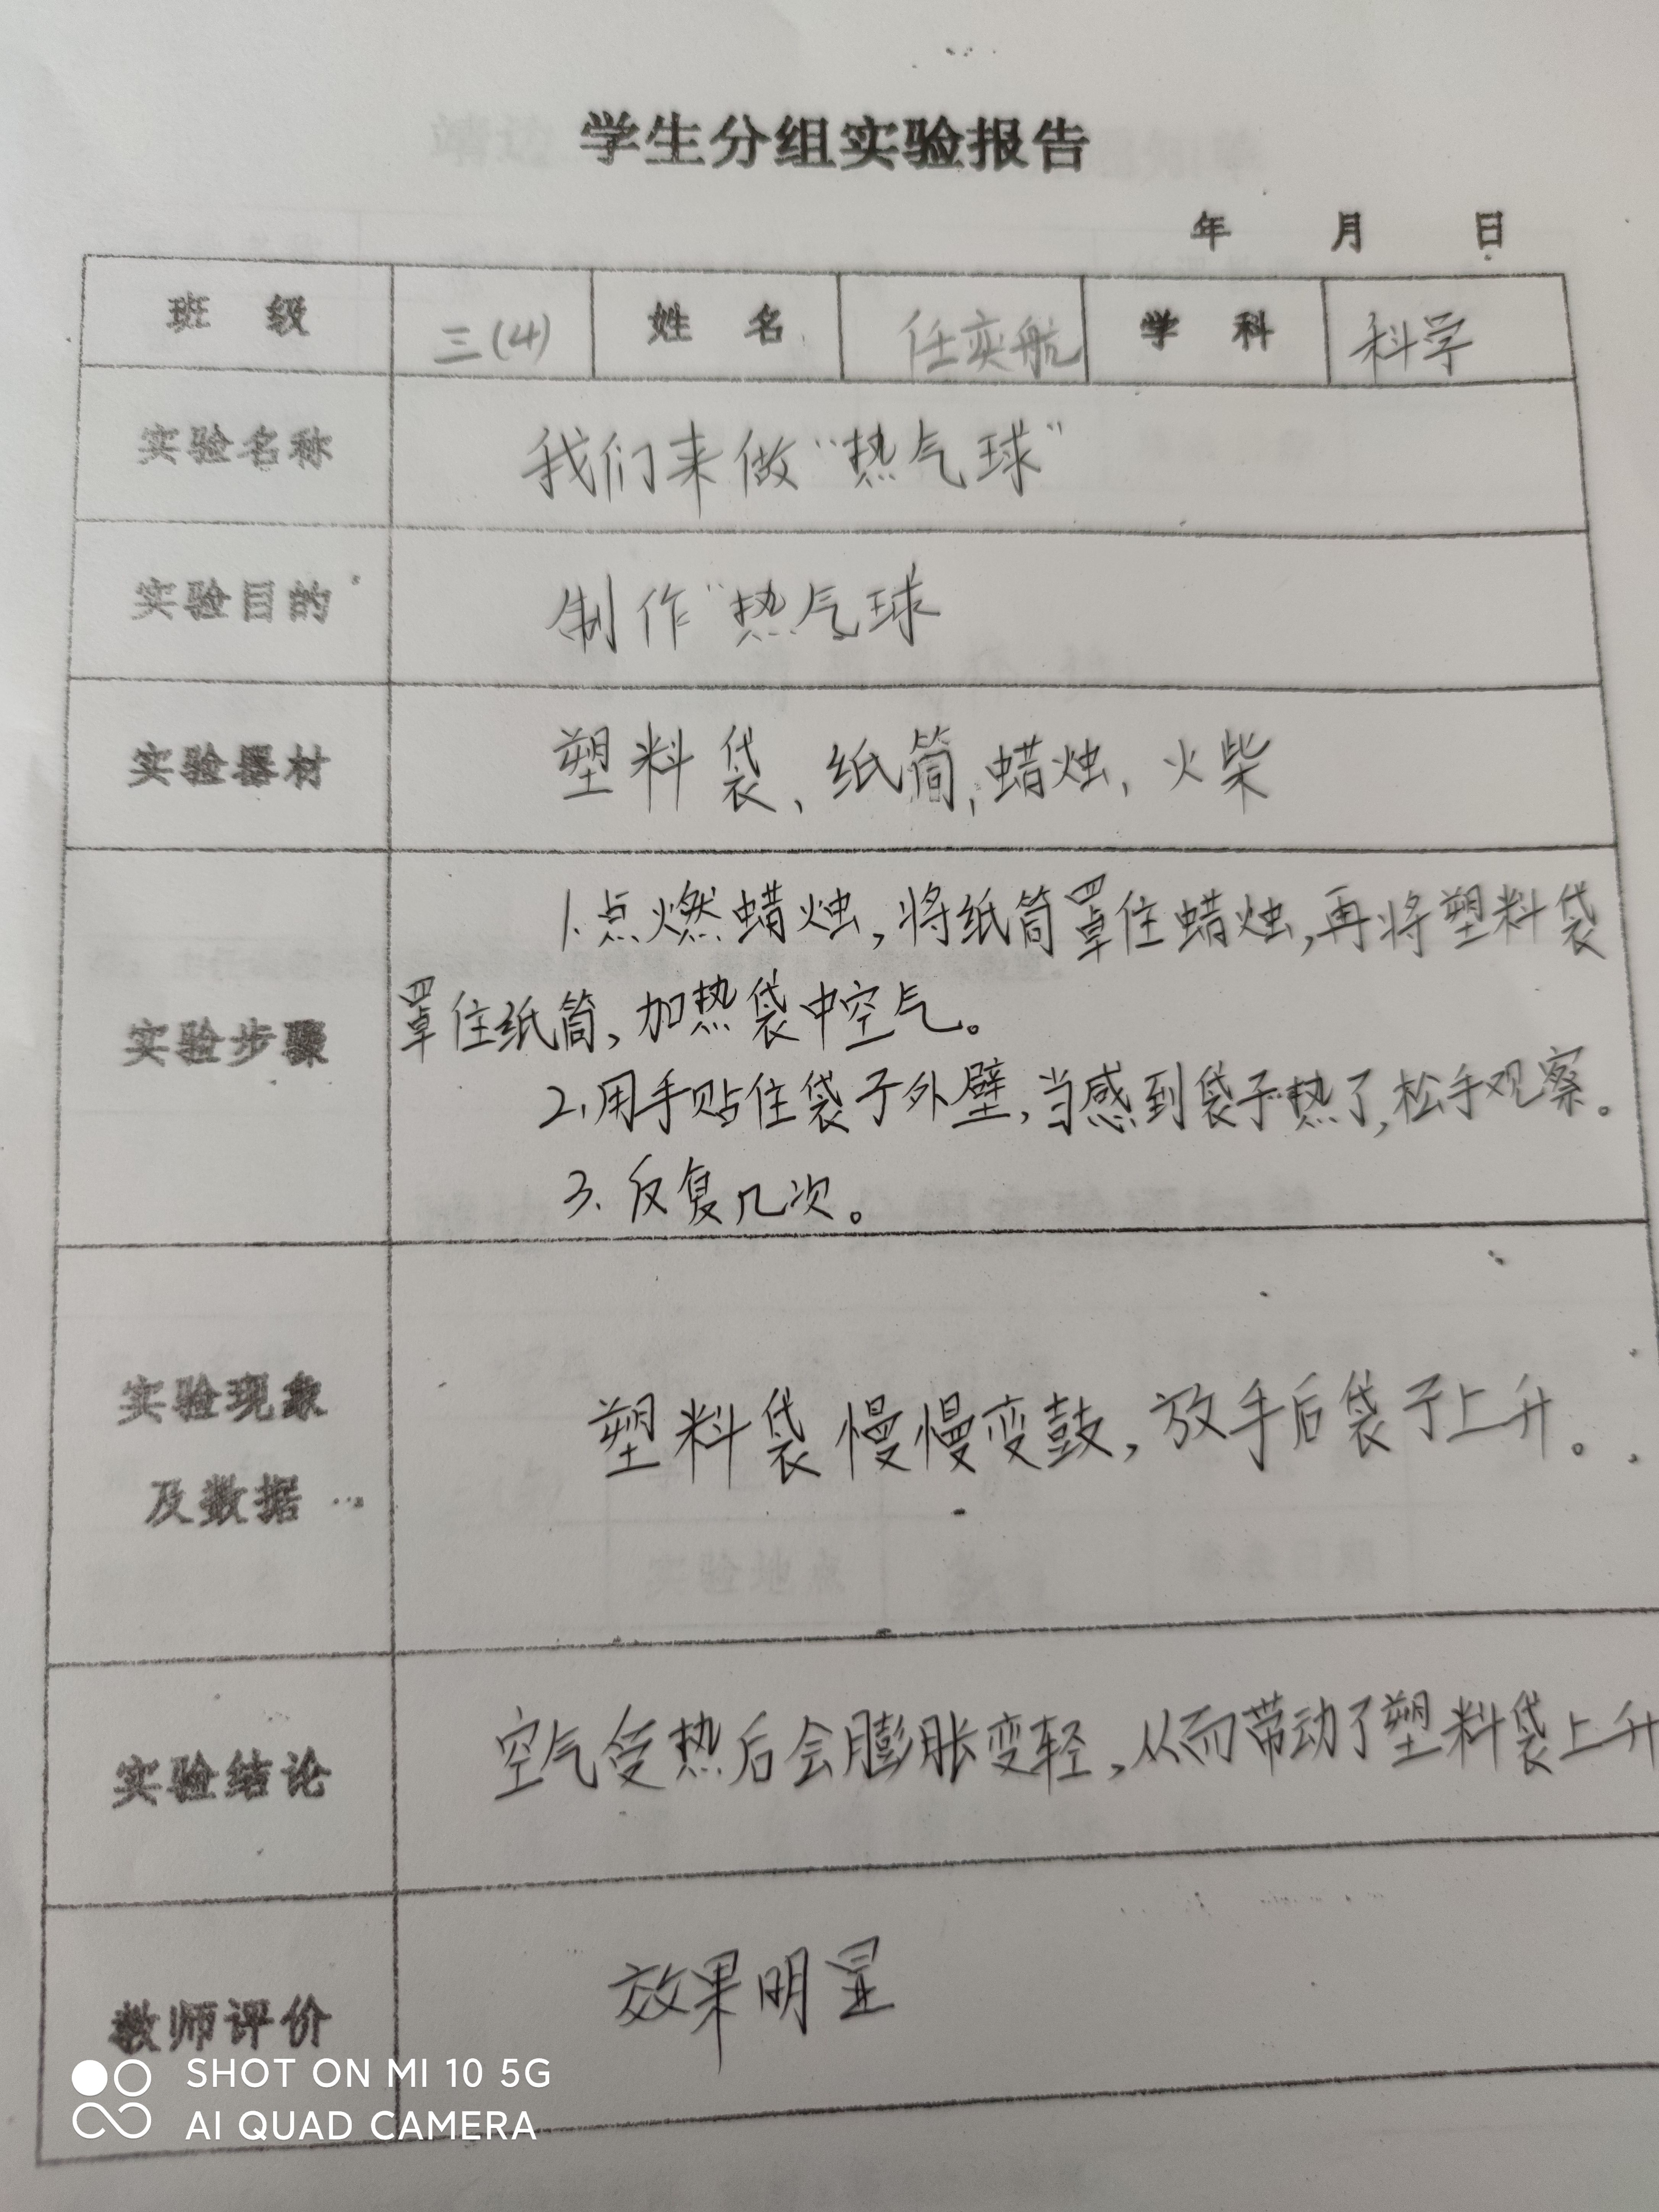 学生分组实验报告
年 月 日
班 级 三(4) 姓 名 任奕航 学 科 科学
实验名称 我们来做“热气球”
实验目的 制作“热气球
实验器材 塑料袋、纸筒,蜡烛,火柴
1.点燃蜡烛,将纸筒罩住蜡烛,再将塑料袋
罩住纸筒,加热袋中空气。
实验步骤
2.用手贴住袋子外壁,当感到袋子热了,松手观察。
3.反复几次。
实验现象
塑料袋慢慢变鼓,放手后袋子上升。
及数据
实验结论 空气受热后会膨胀变轻,从而带动了塑料袋上升
教师评价 效果明显
SHOT ON MI 10 5G
AI QUAD CAMERA